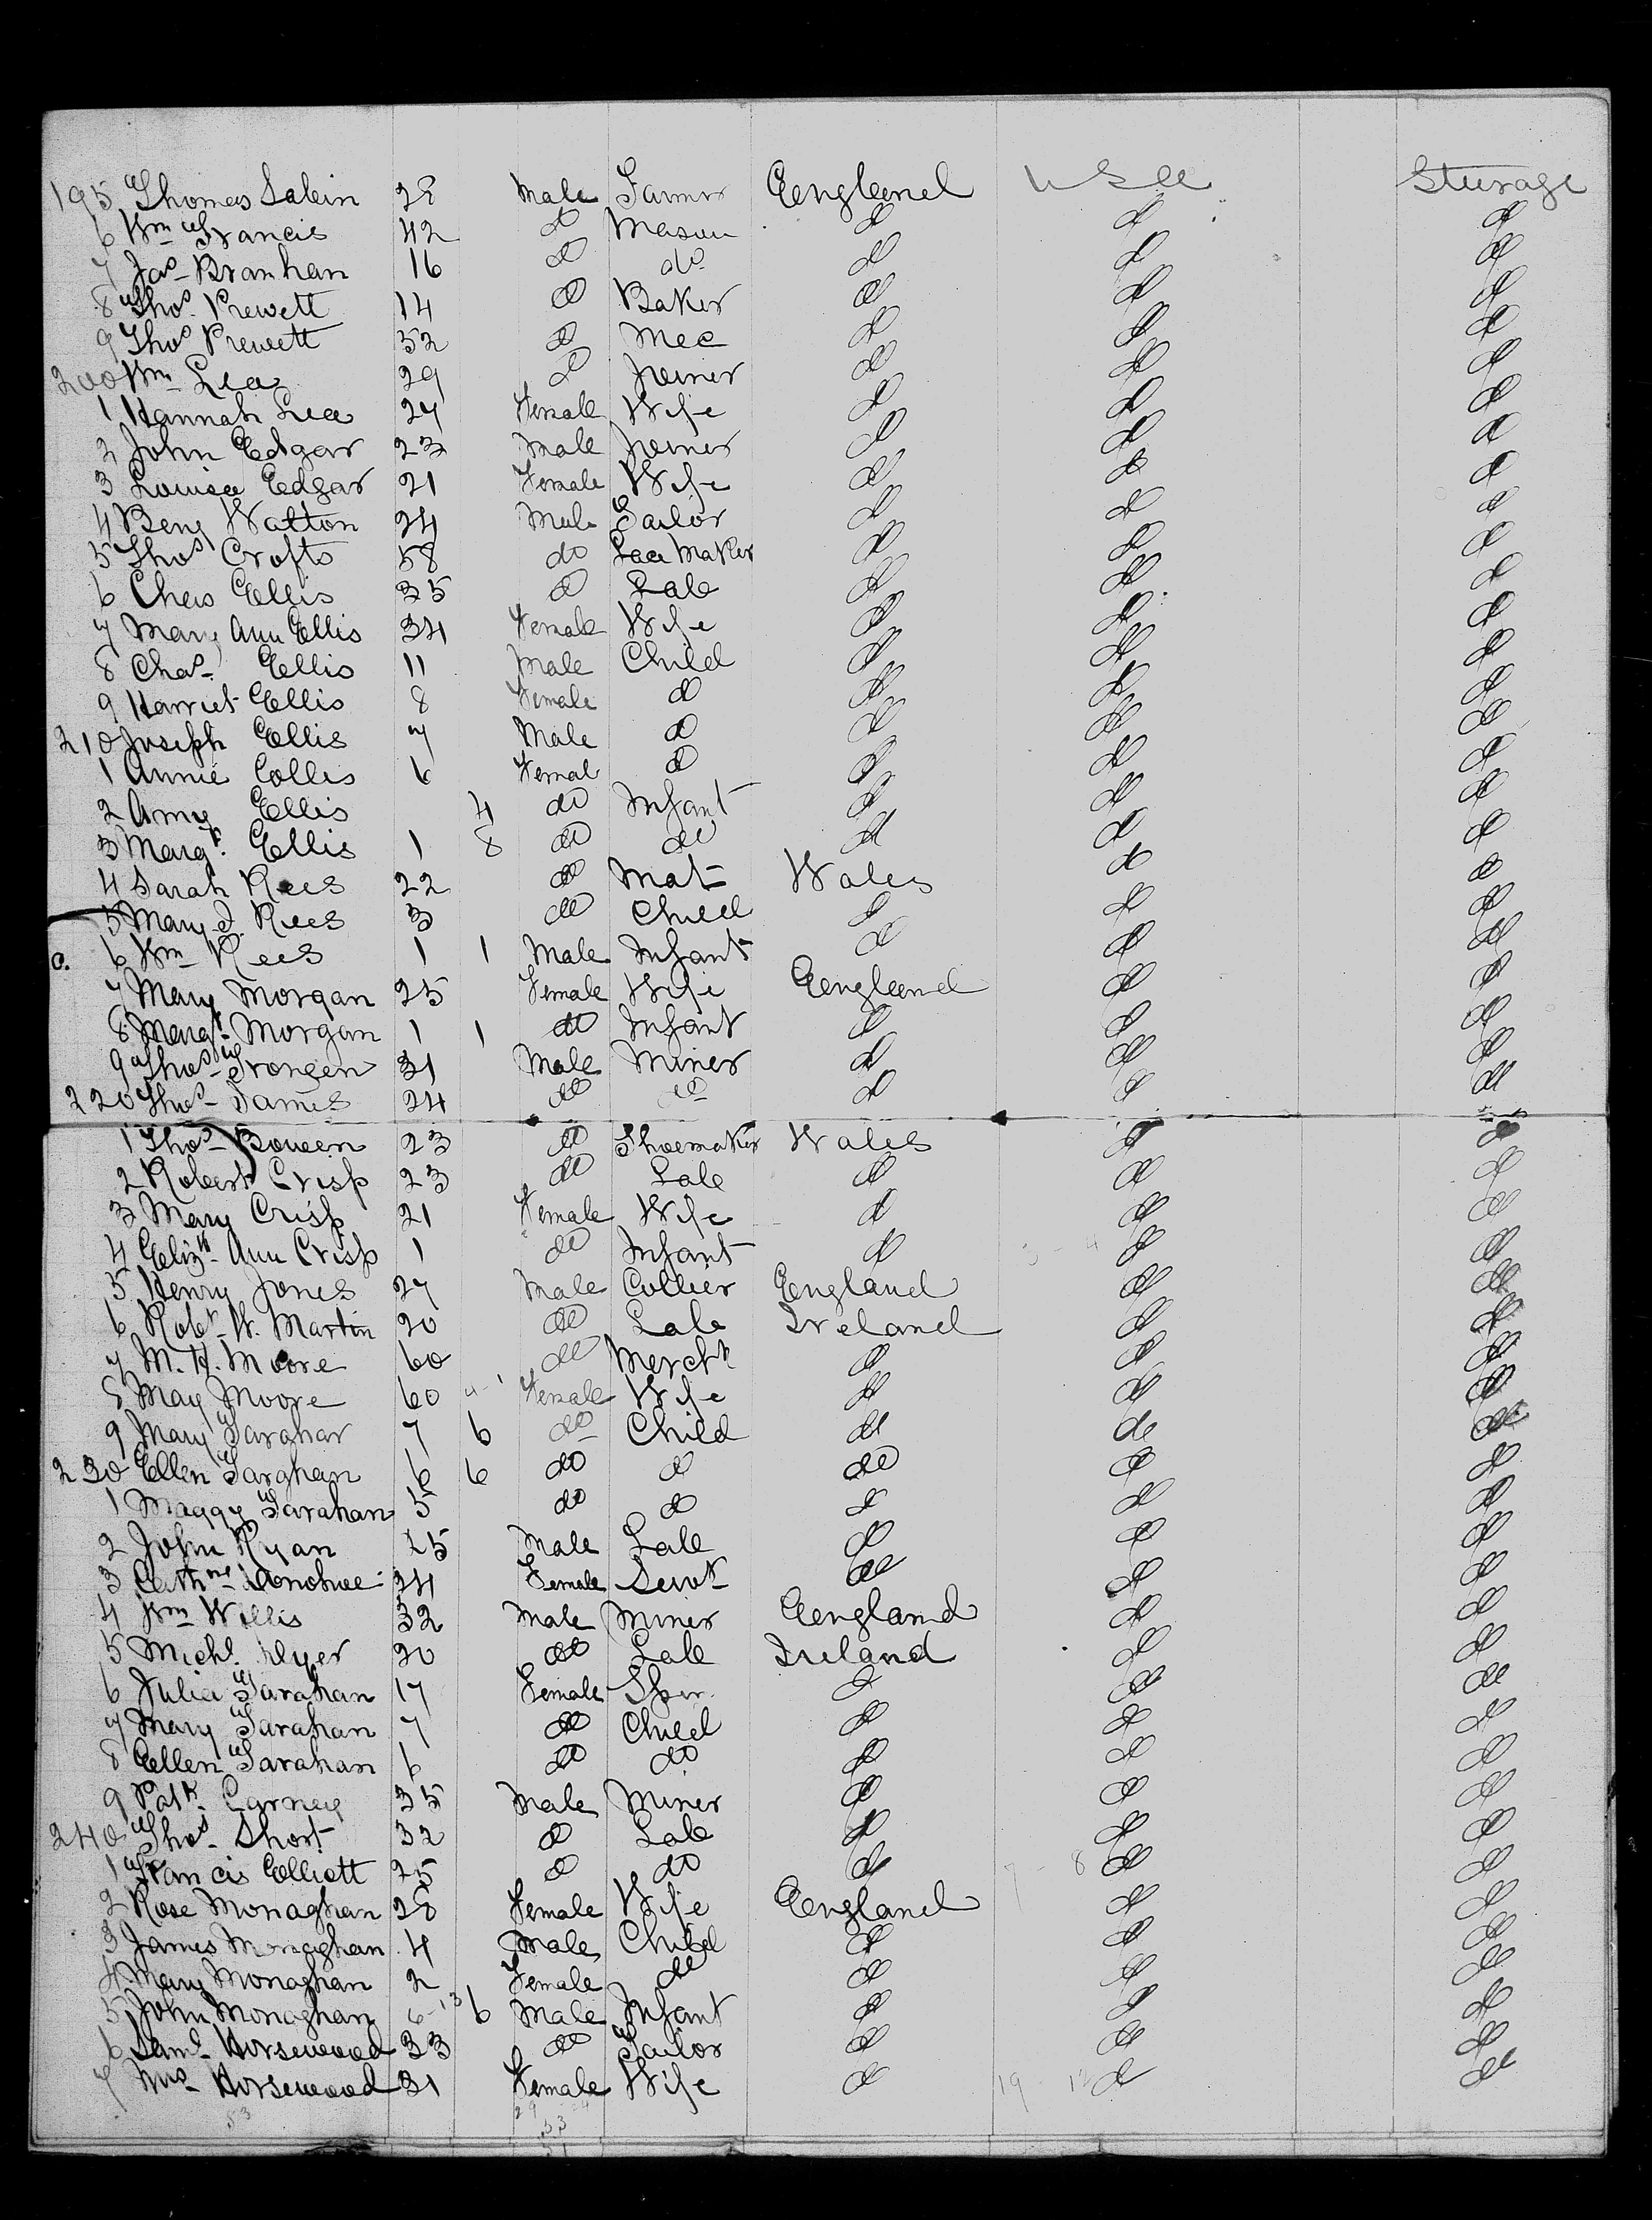 195 Thomas Salein 28 Male Farmer England USA Steerage
6 Wm Francis 42 do Mason do do do
7 Jas Branhan 16 do do do do do
8 Thos. Prewett 14 do Baker do do do
9 Thos Prewett 52 do Mec do do do
200 Wm Lea 29 do Joiner do do do
1 Hannah Lea 27 Female Wife do do do
2 John Edgar 23 Male Joiner do do do
3 Louisa Edgar 21 Female Wife do do do
4 Benj Watton 24 Male Tailor do do do
5 Thos Crofts 58 do Lace Maker do do do
6 Chas Ellis 35 do Lab do do do
7 Mary Ann Ellis 34 Female Wife do do do
8 Chas. Ellis 11 Male Child do do do
9 Harriet Ellis 8 Female do do do do
210 Joseph Ellis 7 Male do do do do
1 Annie Ellis 6 Female do do do do
2 Amy Ellis 4 do Infant do do do
3 Margt. Ellis 1 8 do do do do do
4 Sarah Rees 22 do Mat Wales do do
5 Mary J. Rees 3 do Child do do do
6 Wm Rees 1 1 Male Infant do do do
7 Mary Morgan 25 Female Wife England do do
8 Margt Morgan 1 1 do Infant do do do
9 Thos 31 Male Miner do do do
220 Thos James 24 do do do do do
1 Thos Boween 23 do Shoemaker Wales do do
2 Robert Crisp 23 do Lab do do do
3 Mary Crisp 21 Female Wife do do do
4 Elizth Ann Crisp 1 do Infant do do do
5 Henry Jones 27 Male Collier England do do
6 Robt. W. Martin 20 do Lab Ireland do do
7 M. H. Moore 60 do Mercht do do do
8 May Moore 60 Female Wife do do do
9 Mary Tarahar 7 6 do Child do do do
230 Ellen Targhan 6 6 do do do do do
1 Maggy Tarahan 5 do do do do do
2 John Ryan 25 Male Lab do do do
3 Cathne Donohue 24 Female Servt do do do
4 Wm Willis 32 Male Miner England do do
5 Michl. Dyer 20 do Lab Ireland do do
6 Julia Tarahan 17 Female Spin. do do do
7 Mary Tarahan 7 do Child do do do
8 Ellen Tarahan 6 do do do do do
9 Patk. Carney 35 Male Miner do do do
240 Thos Short 32 do Lab do do do
1 Francis Elliott 25 do do do do do
2 Rose Monaghan 28 Female Wife England do do
3 James Monaghan 4 Male Child do do do
4 Mary Monaghan 2 Female do do do do
5 John Monaghan 6 Male Infant do do do
6 Saml. Horsewood 33 do Tailor do do do
7 Mrs Horsewood 31 Female Wife do do do